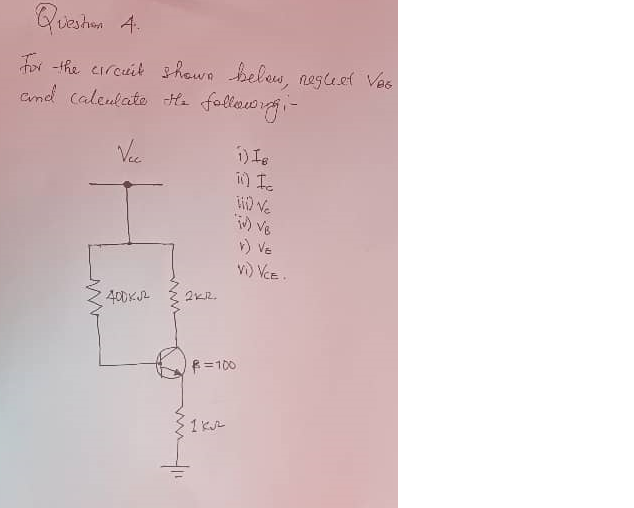 Question 4.
For the circuit shown below, neglect VBE
and calculate the following:-
Vcc
i) IB
ii) Ic
iii) Vc
iv) VB
v) VE
vi) VCE.
400KΩ
2KΩ.
β=100
1KΩ